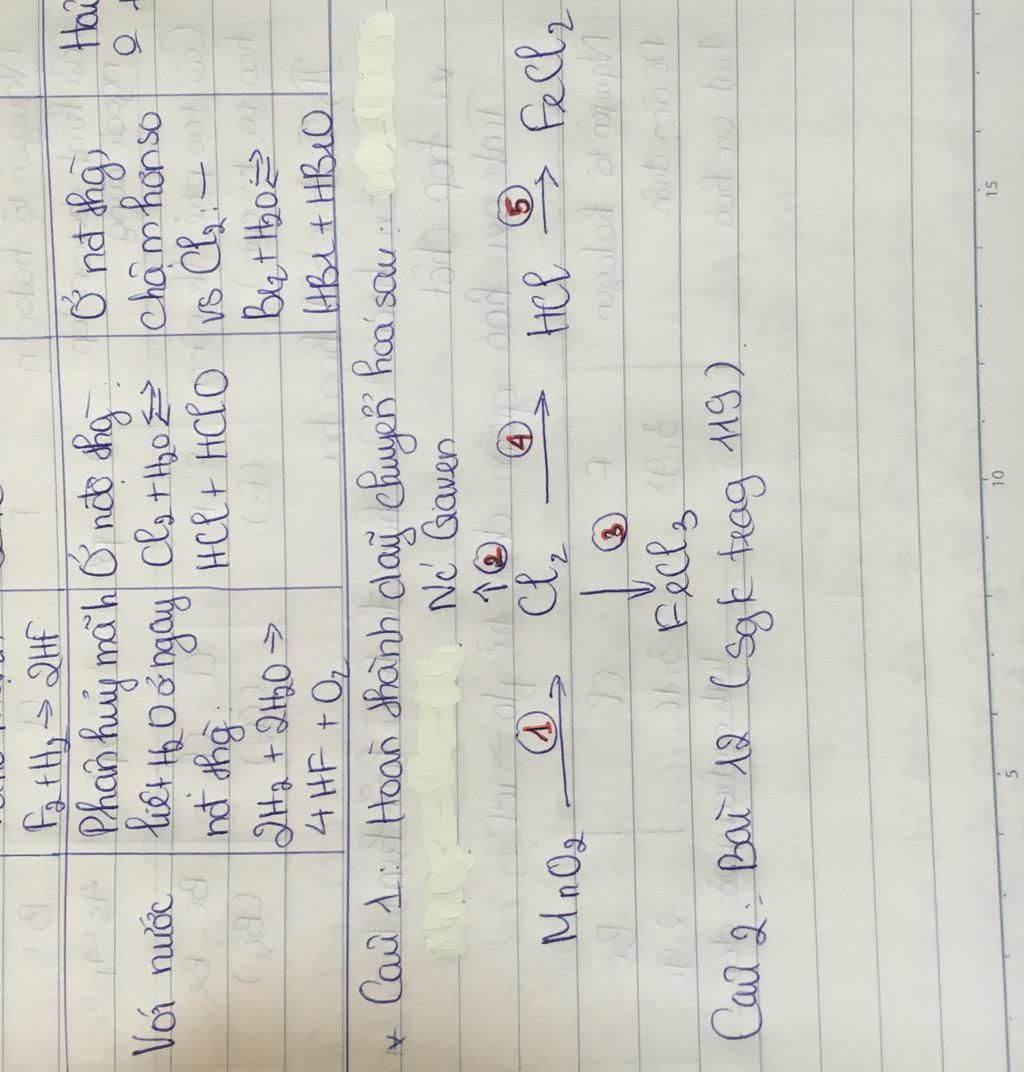 F₂ + H₂ → 2HF
Với nước
Phân huỷ mãnh
liệt H₂O ở ngay
nđ thg:
2H₂ + 2H₂O →
4HF + O₂
Ở nđộ thg:
Cl₂ + H₂O ⇌
HCl + HClO
Ở nđ thg,
chậm hơn so
vs Cl₂:
Br₂ + H₂O ⇌
HBr + HBrO
* Câu 1: Hoàn thành dãy chuyển hoá sau:
Nc' Giaven
↑ ②
MnO₂ ① → Cl₂ ④ → HCl ⑤ → FeCl₂
↓ ③
FeCl₃
Câu 2: Bài 12 (sgk trag 119).
5 10 15